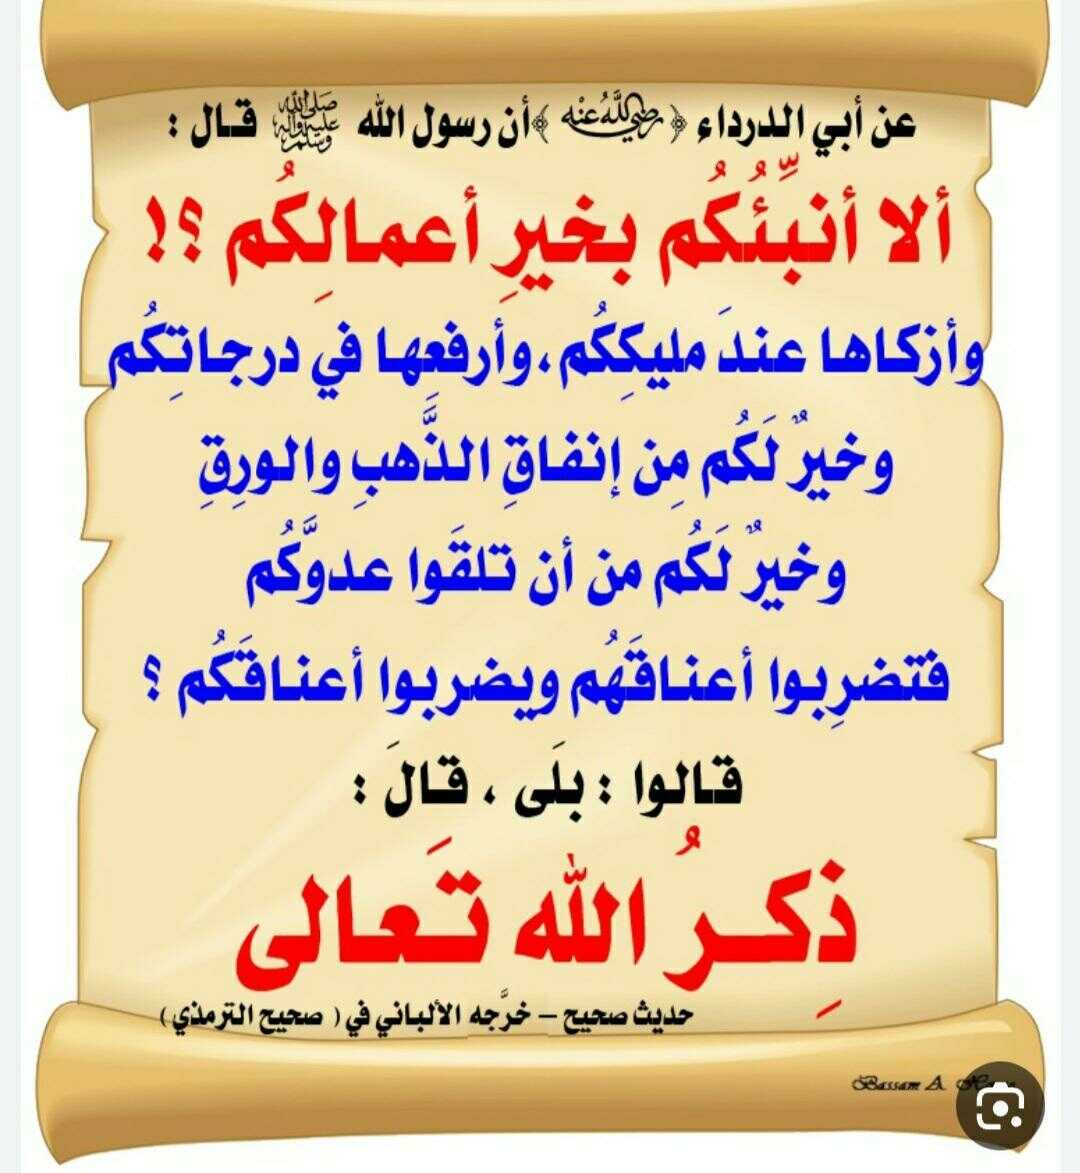 عن أبي الدرداء ﴿ رضي الله عنه ﴾ أن رسول الله ﷺ قال :
ألا أنبِّئُكُم بخيرِ أعمالِكُم ؟!
وأزكاها عندَ مليكِكُم ، وأرفعها في درجاتِكُم
وخيرٌ لَكُم مِن إنفاقِ الذَّهبِ والورِقِ
وخيرٌ لَكُم من أن تلقَوا عدوَّكُم
فتضرِبوا أعناقَهُم ويضربوا أعناقَكُم ؟
قالوا : بلَى ، قالَ :
ذِكرُ الله تَعالى
حديث صحيح – خرَّجه الألباني في ( صحيح الترمذي )
Bassam A.